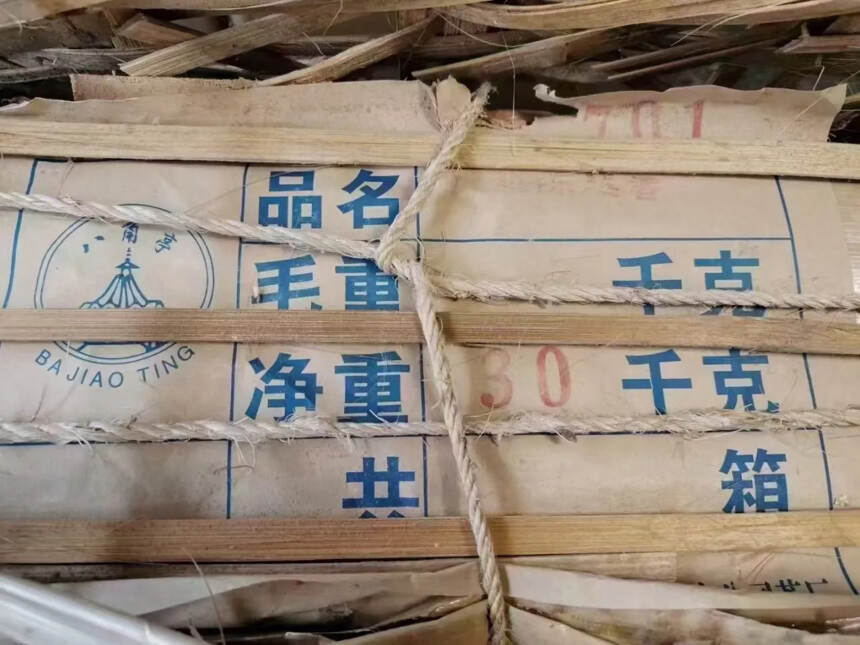 701
品名
毛重 千克
净重 30 千克
共 箱
八角亭
BAJIAO TING